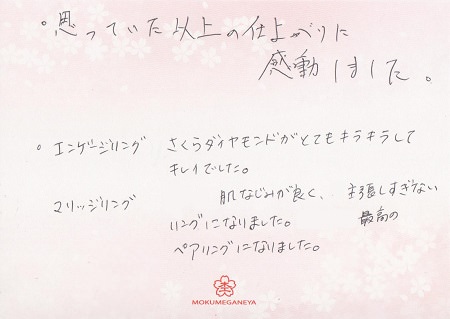 。思っていた以上の仕上がりに
感動しました。
。エンゲージリング さくらダイヤモンドがとてもキラキラして
キレイでした。
マリッジリング 肌なじみが良く、主張しすぎない
リングになりました。最高の
ペアリングになりました。
MOKUMEGANEYA